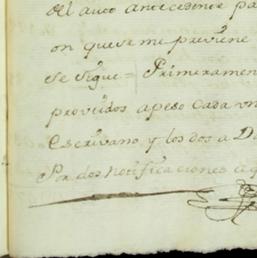 del auto antecedente pa
on que se me previene
se sigue = Primeramen
proveidos a peso cada un
Escrivano, y los dos a D.
Por dos Notificaciones a